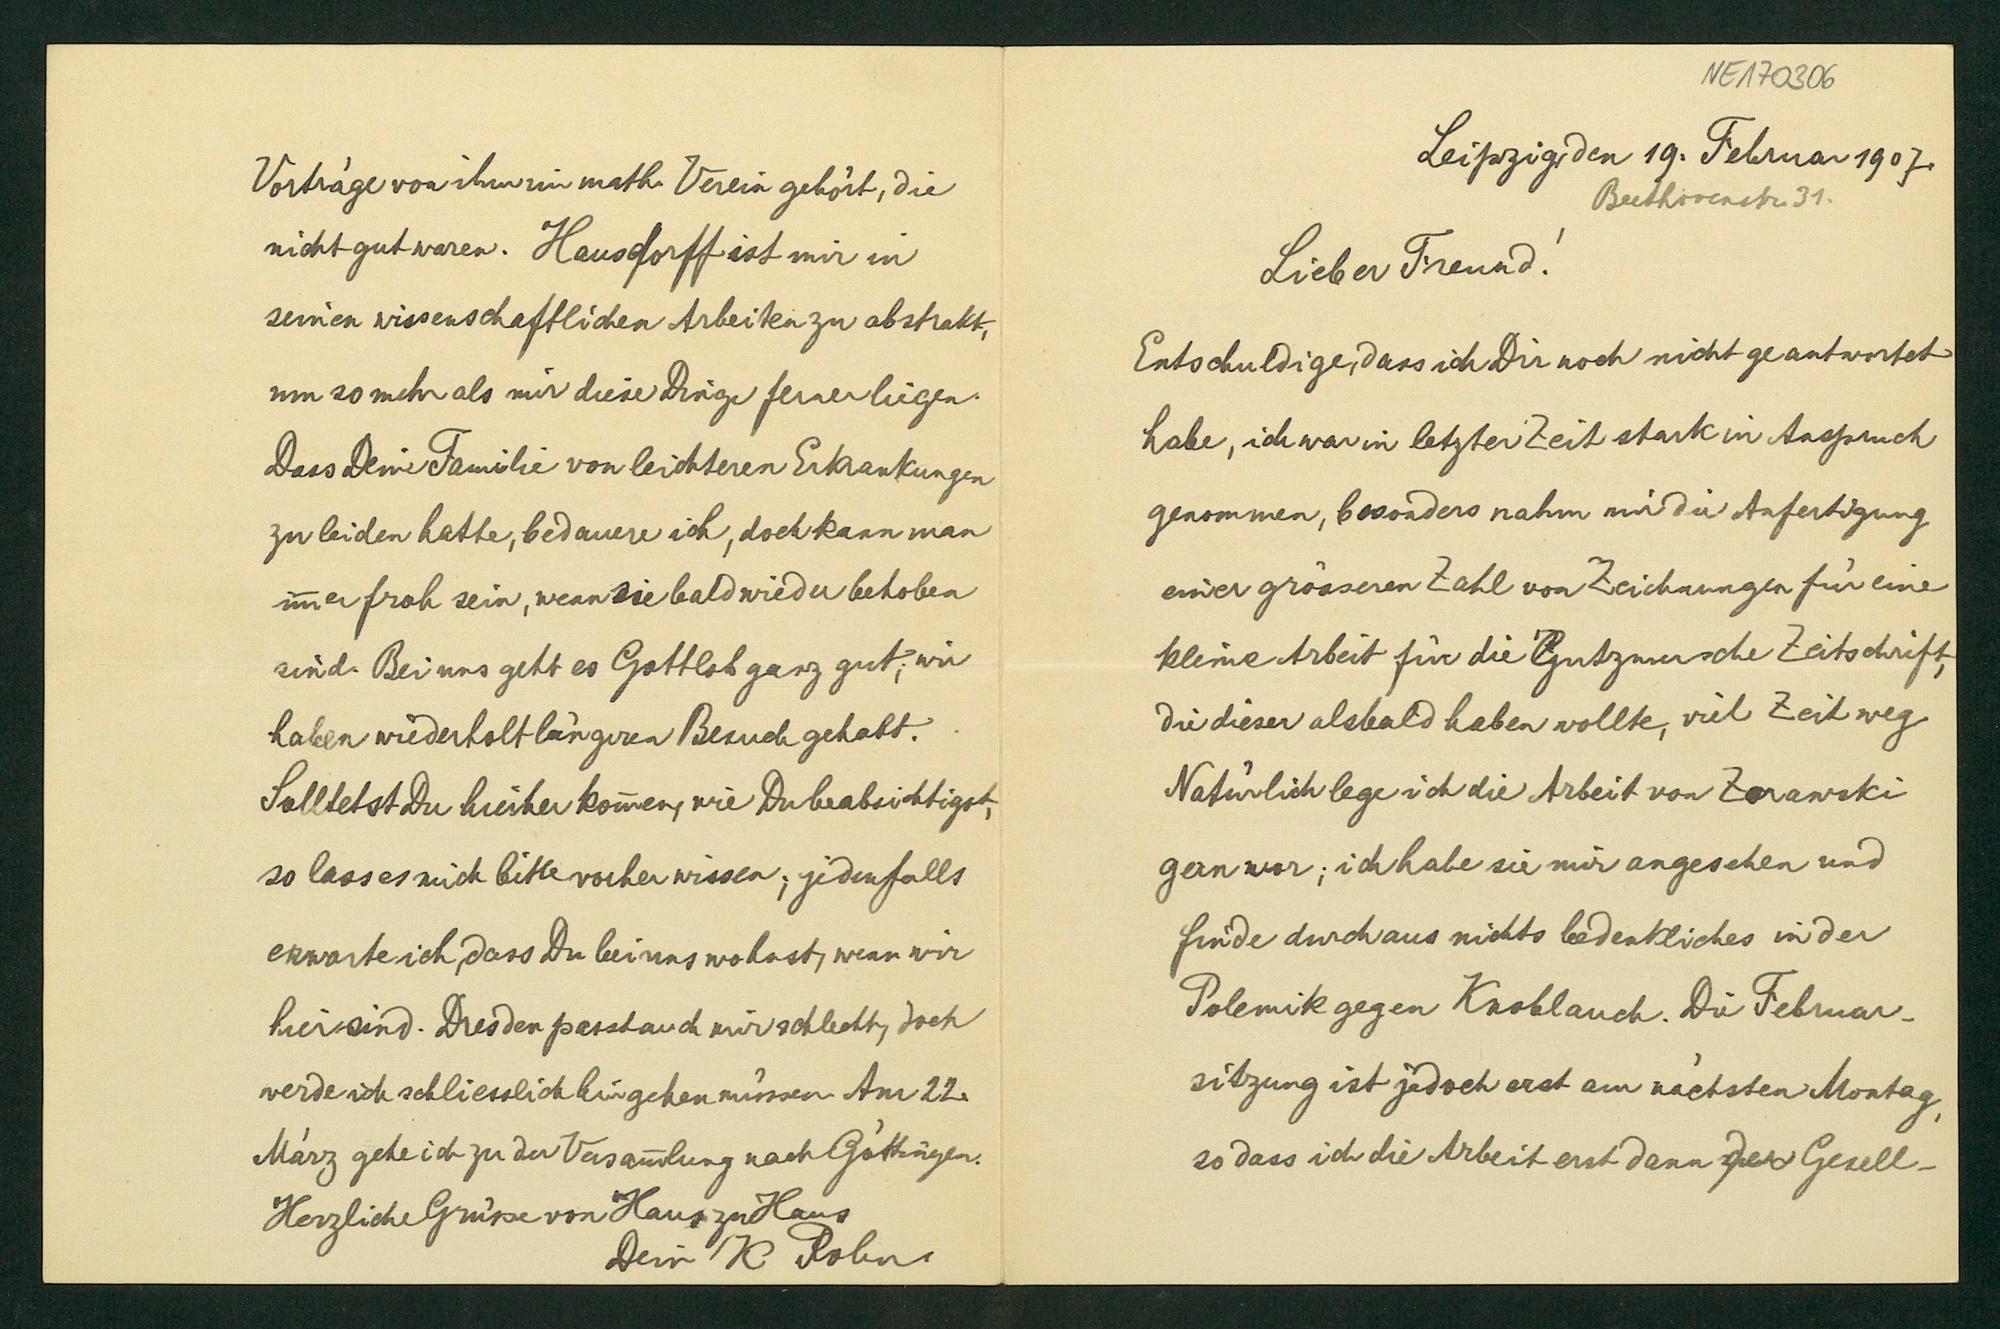 NE170306
Leipzig, den 19. Februar 1907.
Beethovenstr. 31.
Lieber Freund!
Entschuldige, dass ich Dir noch nicht geantwortet
habe, ich war in letzter Zeit stark in Anspruch
genommen, besonders nahm mir die Anfertigung
einer grösseren Zahl von Zeichnungen für eine
kleine Arbeit für die Gutzmersche Zeitschrift,
die dieser alsbald haben wollte, viel Zeit weg
Natürlich lege ich die Arbeit von Zorawski
gern vor; ich habe sie mir angesehen und
finde durchaus nichts bedenkliches in der
Polemik gegen Knoblauch. Die Februar-
sitzung ist jedoch erst am nächsten Montag,
so dass ich die Arbeit erst dann der Gesell-
Vorträge von ihm im math. Verein gehört, die
nicht gut waren. Hausdorff ist mir in
seinen wissenschaftlichen Arbeiten zu abstrakt,
um so mehr als mir diese Dinge ferner liegen.
Dass Deine Familie von leichteren Erkrankungen
zu leiden hatte, bedauere ich, doch kann man
im̅er froh sein, wenn sie bald wieder behoben
sind. Bei uns geht es Gottlob ganz gut; wir
haben wiederholt längeren Besuch gehabt.
Solltetst Du hierher kom̅en, wie Du beabsichtigst,
so lass es mich bitte vorher wissen; jedenfalls
erwarte ich, dass Du bei uns wohnst, wenn wir
hier sind. Dresden passt auch mir schlecht, doch
werde ich schliesslich hingehen müssen. Am 22.
März gehe ich zu der Versam̅lung nach Göttingen.
Herzliche Grüsse von Haus zu Haus
Dein K Rohn.